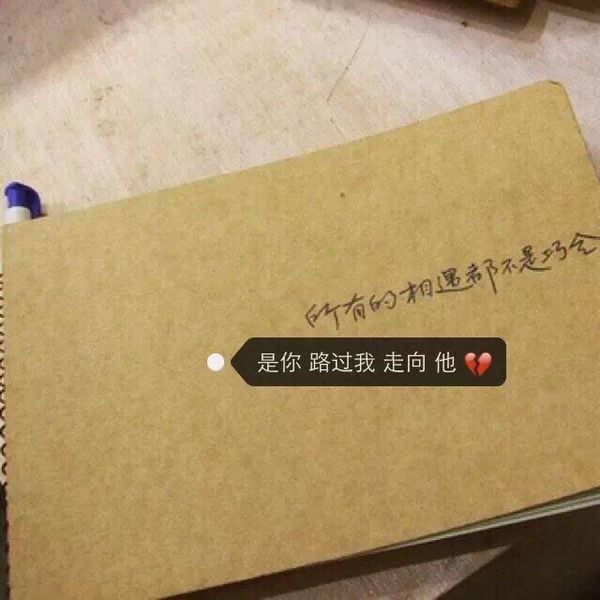 所有的相遇都不是巧合
是你 路过我 走向 他 💔